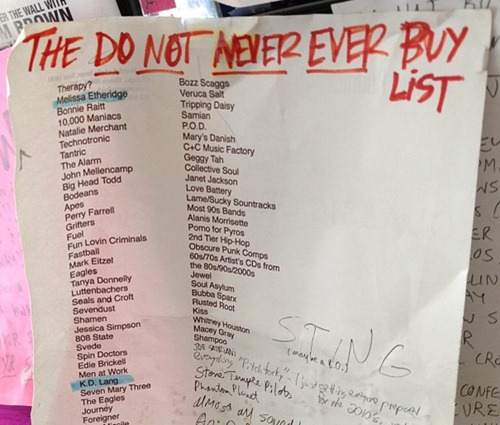 ER THE WALL WITH
M BROWN
THE DO NOT NEVER EVER BUY
LIST
Therapy?
Melissa Etheridge
Bonnie Raitt
10,000 Maniacs
Natalie Merchant
Technotronic
Tantric
The Alarm
John Mellencamp
Big Head Todd
Bodeans
Apes
Perry Farrell
Grifters
Fuel
Fun Lovin Criminals
Fastball
Mark Eitzel
Eagles
Tanya Donnelly
Luttenbachers
Seals and Croft
Sevendust
Shamen
Jessica Simpson
808 State
Svede
Spin Doctors
Edie Brickell
Men at Work
K.D. Lang
Seven Mary Three
The Eagles
Journey
Foreigner
Bozz Scaggs
Veruca Salt
Tripping Daisy
Samian
P.O.D.
Mary's Danish
C+C Music Factory
Geggy Tah
Collective Soul
Janet Jackson
Love Battery
Lame/Sucky Sountracks
Most 90s Bands
Alanis Morrisette
Porno for Pyros
2nd Tier Hip-Hop
Obscure Punk Comps
60s/70s Artist's CDs from
the 80s/90s/2000s
Jewel
Soul Asylum
Bubba Sparx
Rusted Root
Kiss
Whitney Houston
Macey Gray
Shampoo
everything "Pitchfork" (just getting everyone prepared
for the 2010's)
Stone Temple Pilots
Phantom Planet
almost all sound
STING
(maybe a k.o.)